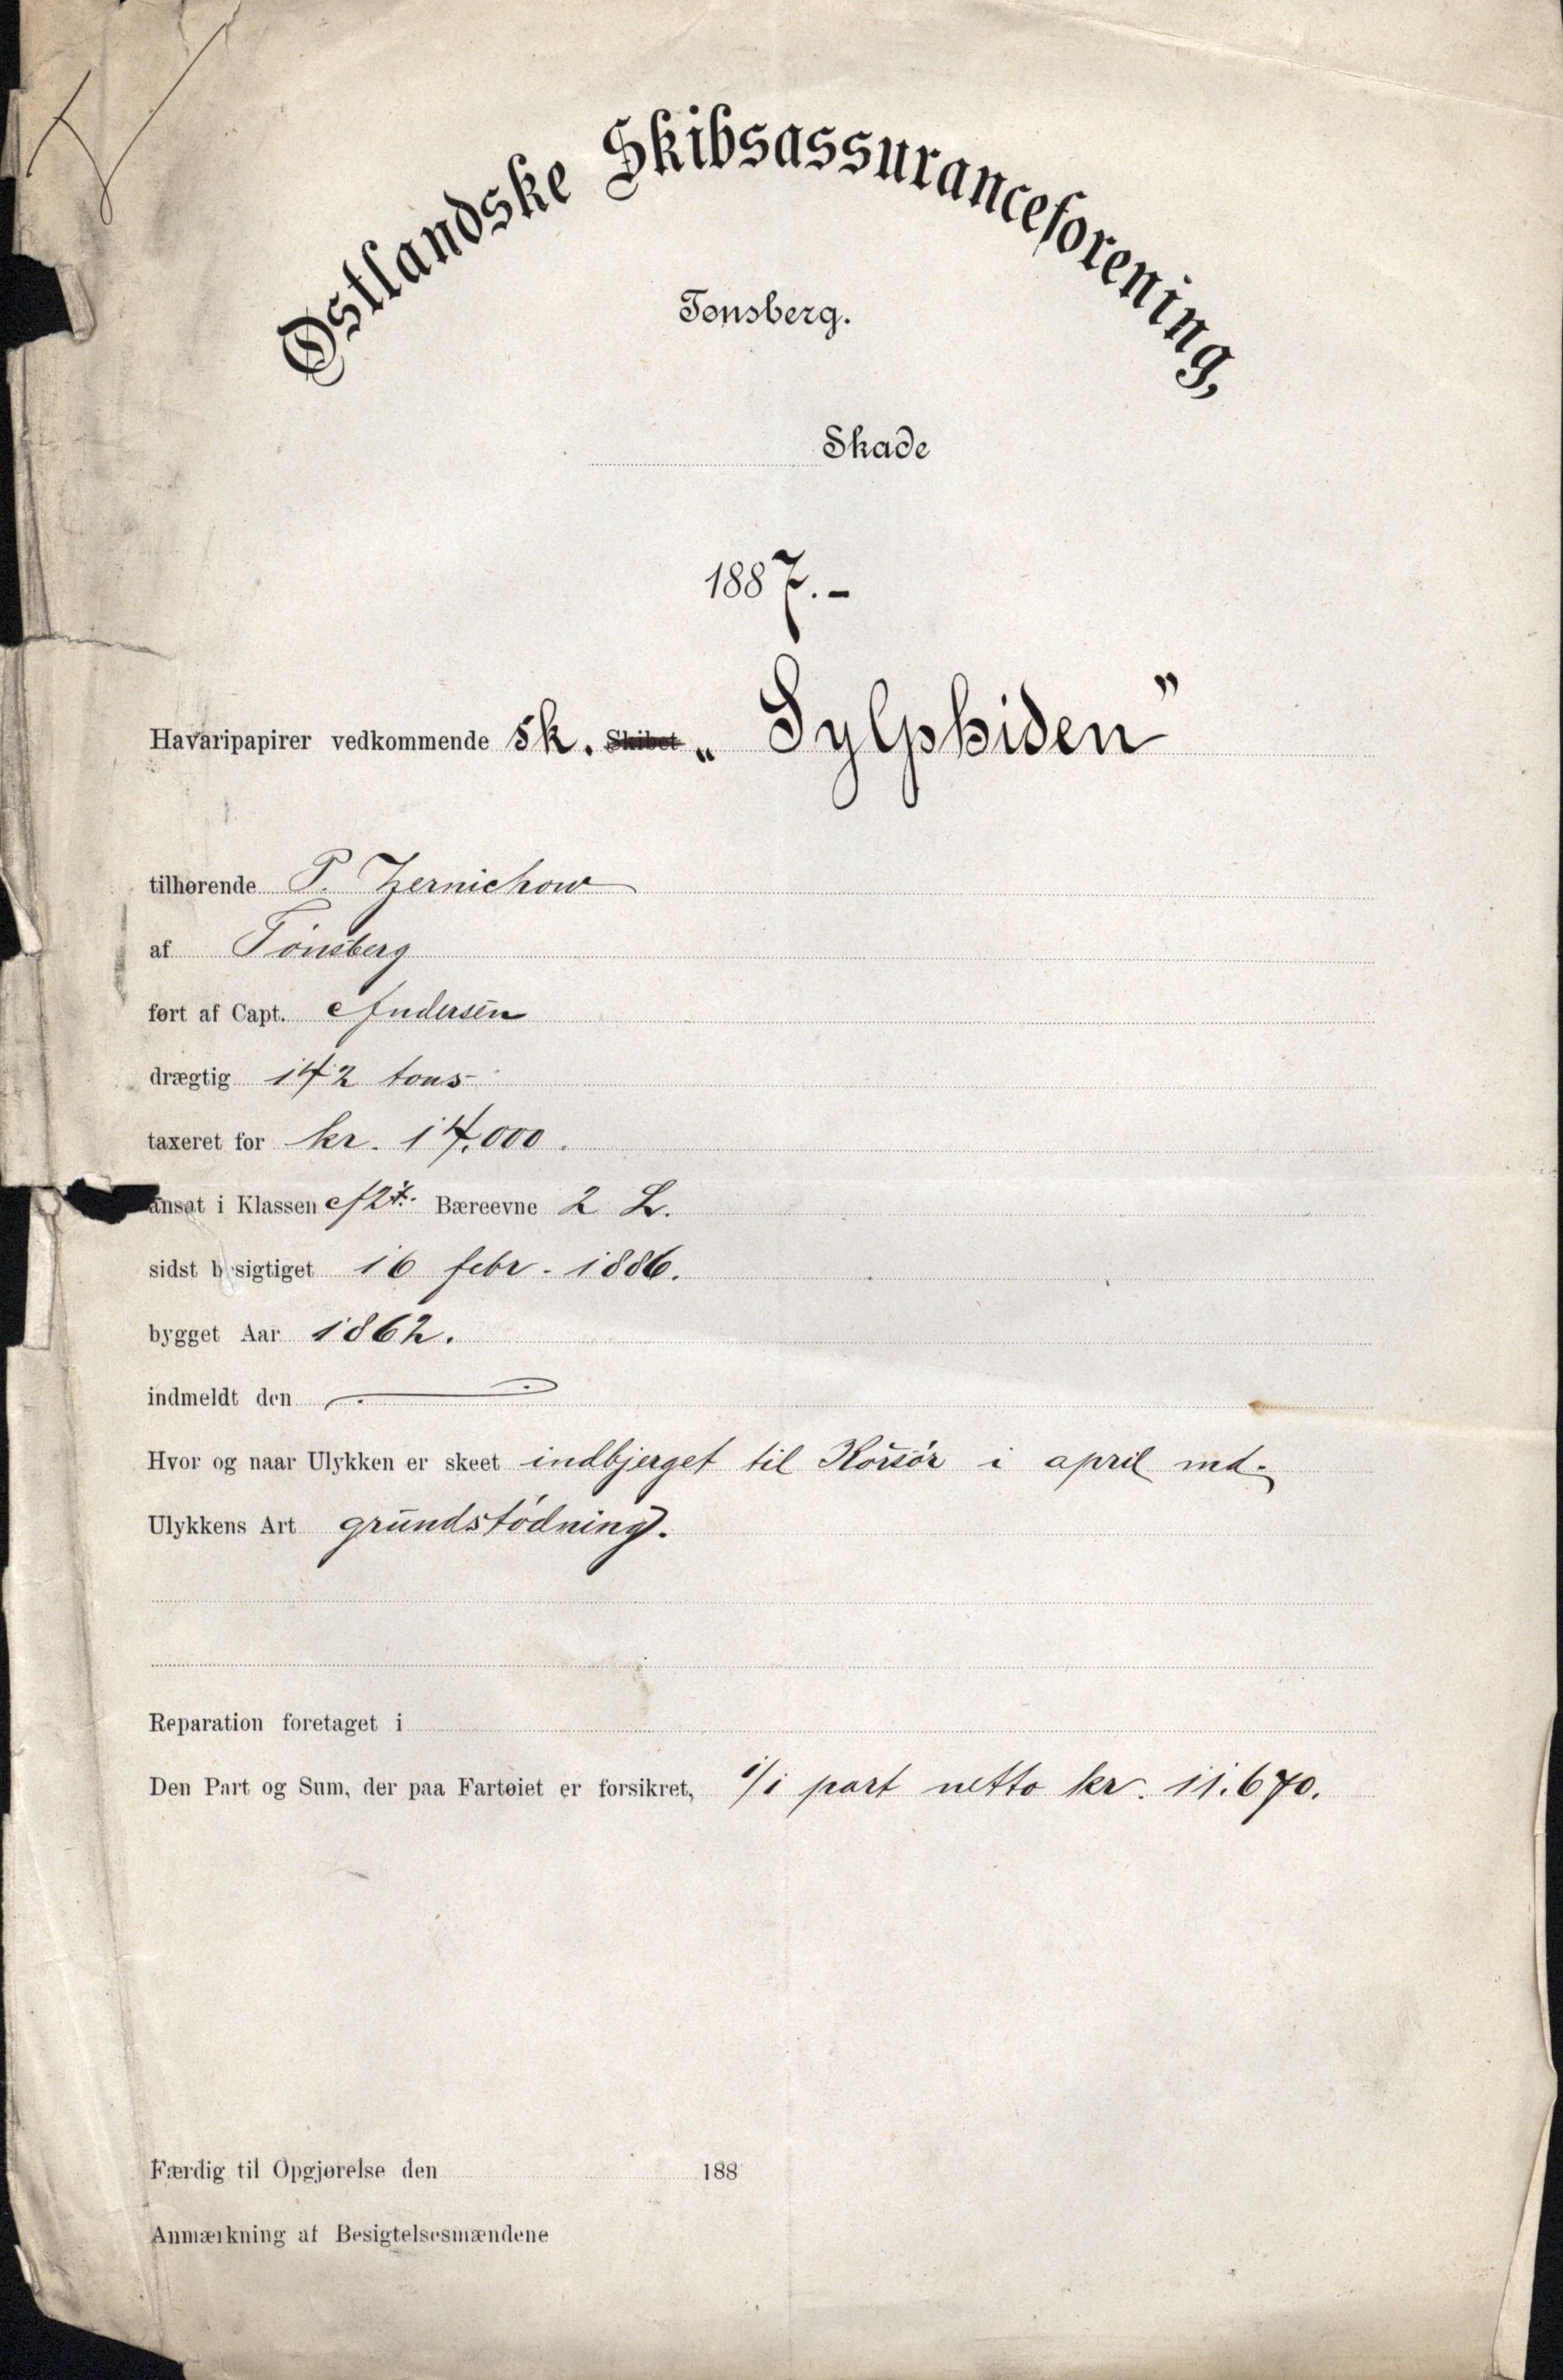 Østlandske Skibsassuranceforening,
Tønsberg.
Skade
1887.-
Havaripapirer vedkommende Sk. Skibet „Sylphiden”
tilhørende P. Zernichow
af Tönsberg
ført af Capt. Andersen
drægtig 142 tons
taxeret for kr. 14,000.
ansat i Klassen A2 Bæreevne 2 L.
sidst besigtiget 16 febr. 1886.
bygget Aar 1862.
indmeldt den
Hvor og naar Ulykken er skeet indbjerget til Korsör i april md.
Ulykkens Art grundstödning.
Reparation foretaget i
Den Part og Sum, der paa Fartøiet er forsikret, 1/1 part netto kr. 11.670.
Færdig til Opgjørelse den 188
Anmærkning af Besigtelsesmændene